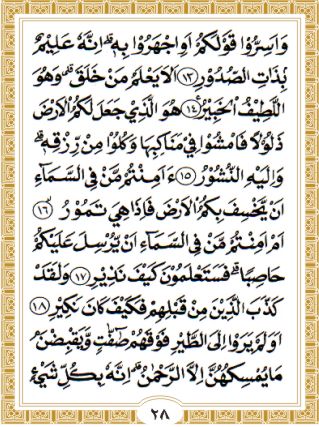 وَاَسِرُّوْا قَوْلَكُمْ اَوِاجْهَرُوْا بِهٖ ؕ اِنَّهٗ عَلِيْمٌۢ
بِذَاتِ الصُّدُوْرِ ﴿۱۳﴾ اَلَا يَعْلَمُ مَنْ خَلَقَ ؕ وَهُوَ
اللَّطِيْفُ الْخَبِيْرُ ﴿۱۴﴾ هُوَ الَّذِيْ جَعَلَ لَكُمُ الْاَرْضَ
ذَلُوْلًا فَامْشُوْا فِيْ مَنَاكِبِهَا وَكُلُوْا مِنْ رِّزْقِهٖ ؕ
وَاِلَيْهِ النُّشُوْرُ ﴿۱۵﴾ ءَاَمِنْتُمْ مَّنْ فِي السَّمَآءِ
اَنْ يَّخْسِفَ بِكُمُ الْاَرْضَ فَاِذَا هِيَ تَمُوْرُ ۙ ﴿۱۶﴾
اَمْ اَمِنْتُمْ مَّنْ فِي السَّمَآءِ اَنْ يُّرْسِلَ عَلَيْكُمْ
حَاصِبًا ؕ فَسَتَعْلَمُوْنَ كَيْفَ نَذِيْرِ ﴿۱۷﴾ وَلَقَدْ
كَذَّبَ الَّذِيْنَ مِنْ قَبْلِهِمْ فَكَيْفَ كَانَ نَكِيْرِ ﴿۱۸﴾
اَوَلَمْ يَرَوْا اِلَى الطَّيْرِ فَوْقَهُمْ صٰٓفّٰتٍ وَّيَقْبِضْنَ ؔۘ
مَا يُمْسِكُهُنَّ اِلَّا الرَّحْمٰنُ ؕ اِنَّهٗ بِكُلِّ شَيْءٍۢ
۲۸